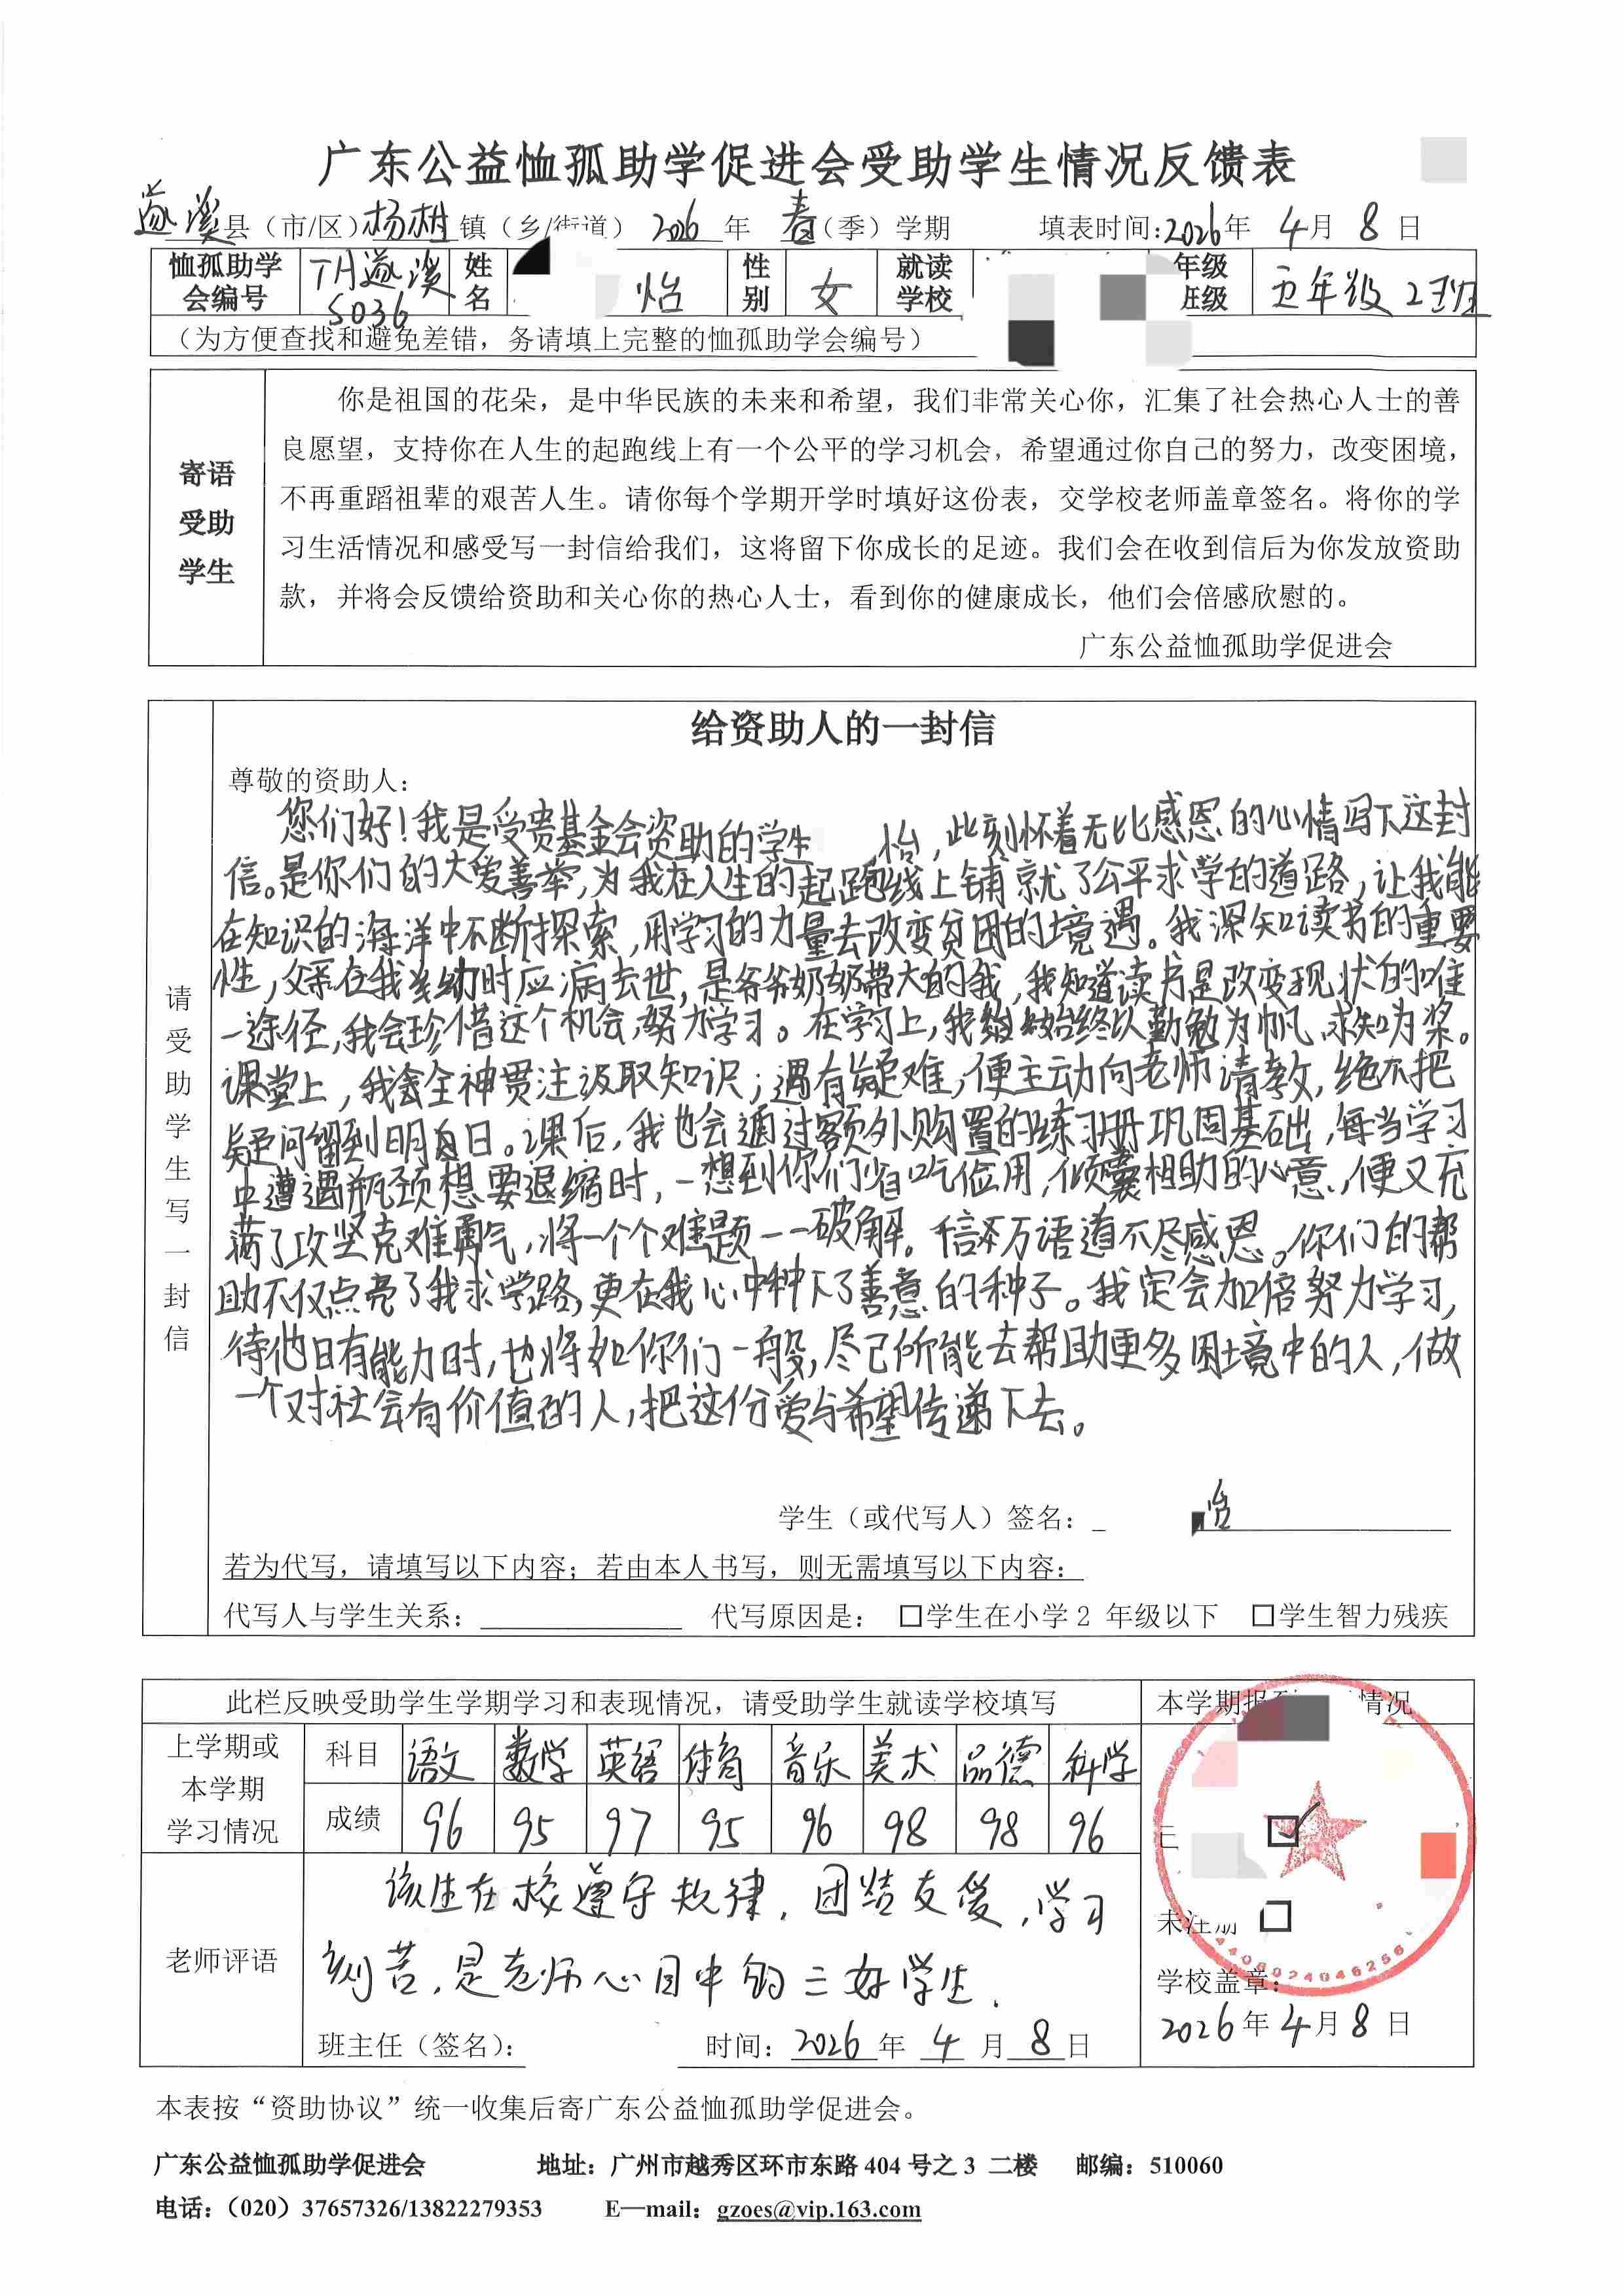 广东公益恤孤助学促进会受助学生情况反馈表
遂溪县（市/区）杨柑镇（乡/街道） 2026年 春（季）学期 填表时间:2026年 4月 8日
恤孤助学会编号 TH遂溪5036 姓名 怡 性别 女 就读学校 年级班级 五年级2班
（为方便查找和避免差错，务请填上完整的恤孤助学会编号）
寄语受助学生
你是祖国的花朵，是中华民族的未来和希望，我们非常关心你，汇集了社会热心人士的善
良愿望，支持你在人生的起跑线上有一个公平的学习机会，希望通过你自己的努力，改变困境，
不再重蹈祖辈的艰苦人生。请你每个学期开学时填好这份表，交学校老师盖章签名。将你的学
习生活情况和感受写一封信给我们，这将留下你成长的足迹。我们会在收到信后为你发放资助
款，并将会反馈给资助和关心你的热心人士，看到你的健康成长，他们会倍感欣慰的。
广东公益恤孤助学促进会
请受助学生写一封信
给资助人的一封信
尊敬的资助人：
您们好！我是受贵基金会资助的学生 怡，此刻怀着无比感恩的心情写下这封
信。是你们的大爱善举，为我在人生的起跑线上铺就了公平求学的道路，让我能
在知识的海洋中不断探索，用学习的力量去改变贫困的境遇。我深知读书的重要
性，父亲在我幼时应病去世，是爷爷奶奶带大的我，我知道读书是改变现状的唯
一途径，我会珍惜这个机会，努力学习。在学习上，我始终以勤勉为帆，求知为桨。
课堂上，我会全神贯注汲取知识；遇有疑难，便主动向老师请教，绝不把
疑问留到明日。课后，我也会通过额外购置的练习册巩固基础，每当学习
中遭遇瓶颈想要退缩时，一想到你们省吃俭用，倾囊相助的心意，便又充
满了攻坚克难勇气，将一个个难题一一破解。千言万语道不尽感恩。你们的帮
助不仅点亮了我求学路，更在我心中种下了善意的种子。我定会加倍努力学习，
待他日有能力时，也将如你们一般，尽己所能去帮助更多困境中的人，做
一个对社会有价值的人，把这份爱与希望传递下去。
学生（或代写人）签名： 怡
若为代写，请填写以下内容；若由本人书写，则无需填写以下内容：
代写人与学生关系： 代写原因是： □学生在小学2 年级以下 □学生智力残疾
此栏反映受助学生学期学习和表现情况，请受助学生就读学校填写 本学期报 情况
上学期或本学期学习情况
科目 语文 数学 英语 体育 音乐 美术 品德 科学
成绩 96 95 97 95 96 98 98 96
老师评语
该生在校遵守规律，团结友爱，学习
刻苦，是老师心目中的三好学生．
班主任（签名）： 时间：2026年 4月 8日
☑
未注册 □
4408024046256
学校盖章：
2026年4月8日
本表按“资助协议”统一收集后寄广东公益恤孤助学促进会。
广东公益恤孤助学促进会 地址：广州市越秀区环市东路 404 号之 3 二楼 邮编：510060
电话：（020）37657326/13822279353 E—mail：gzoes@vip.163.com